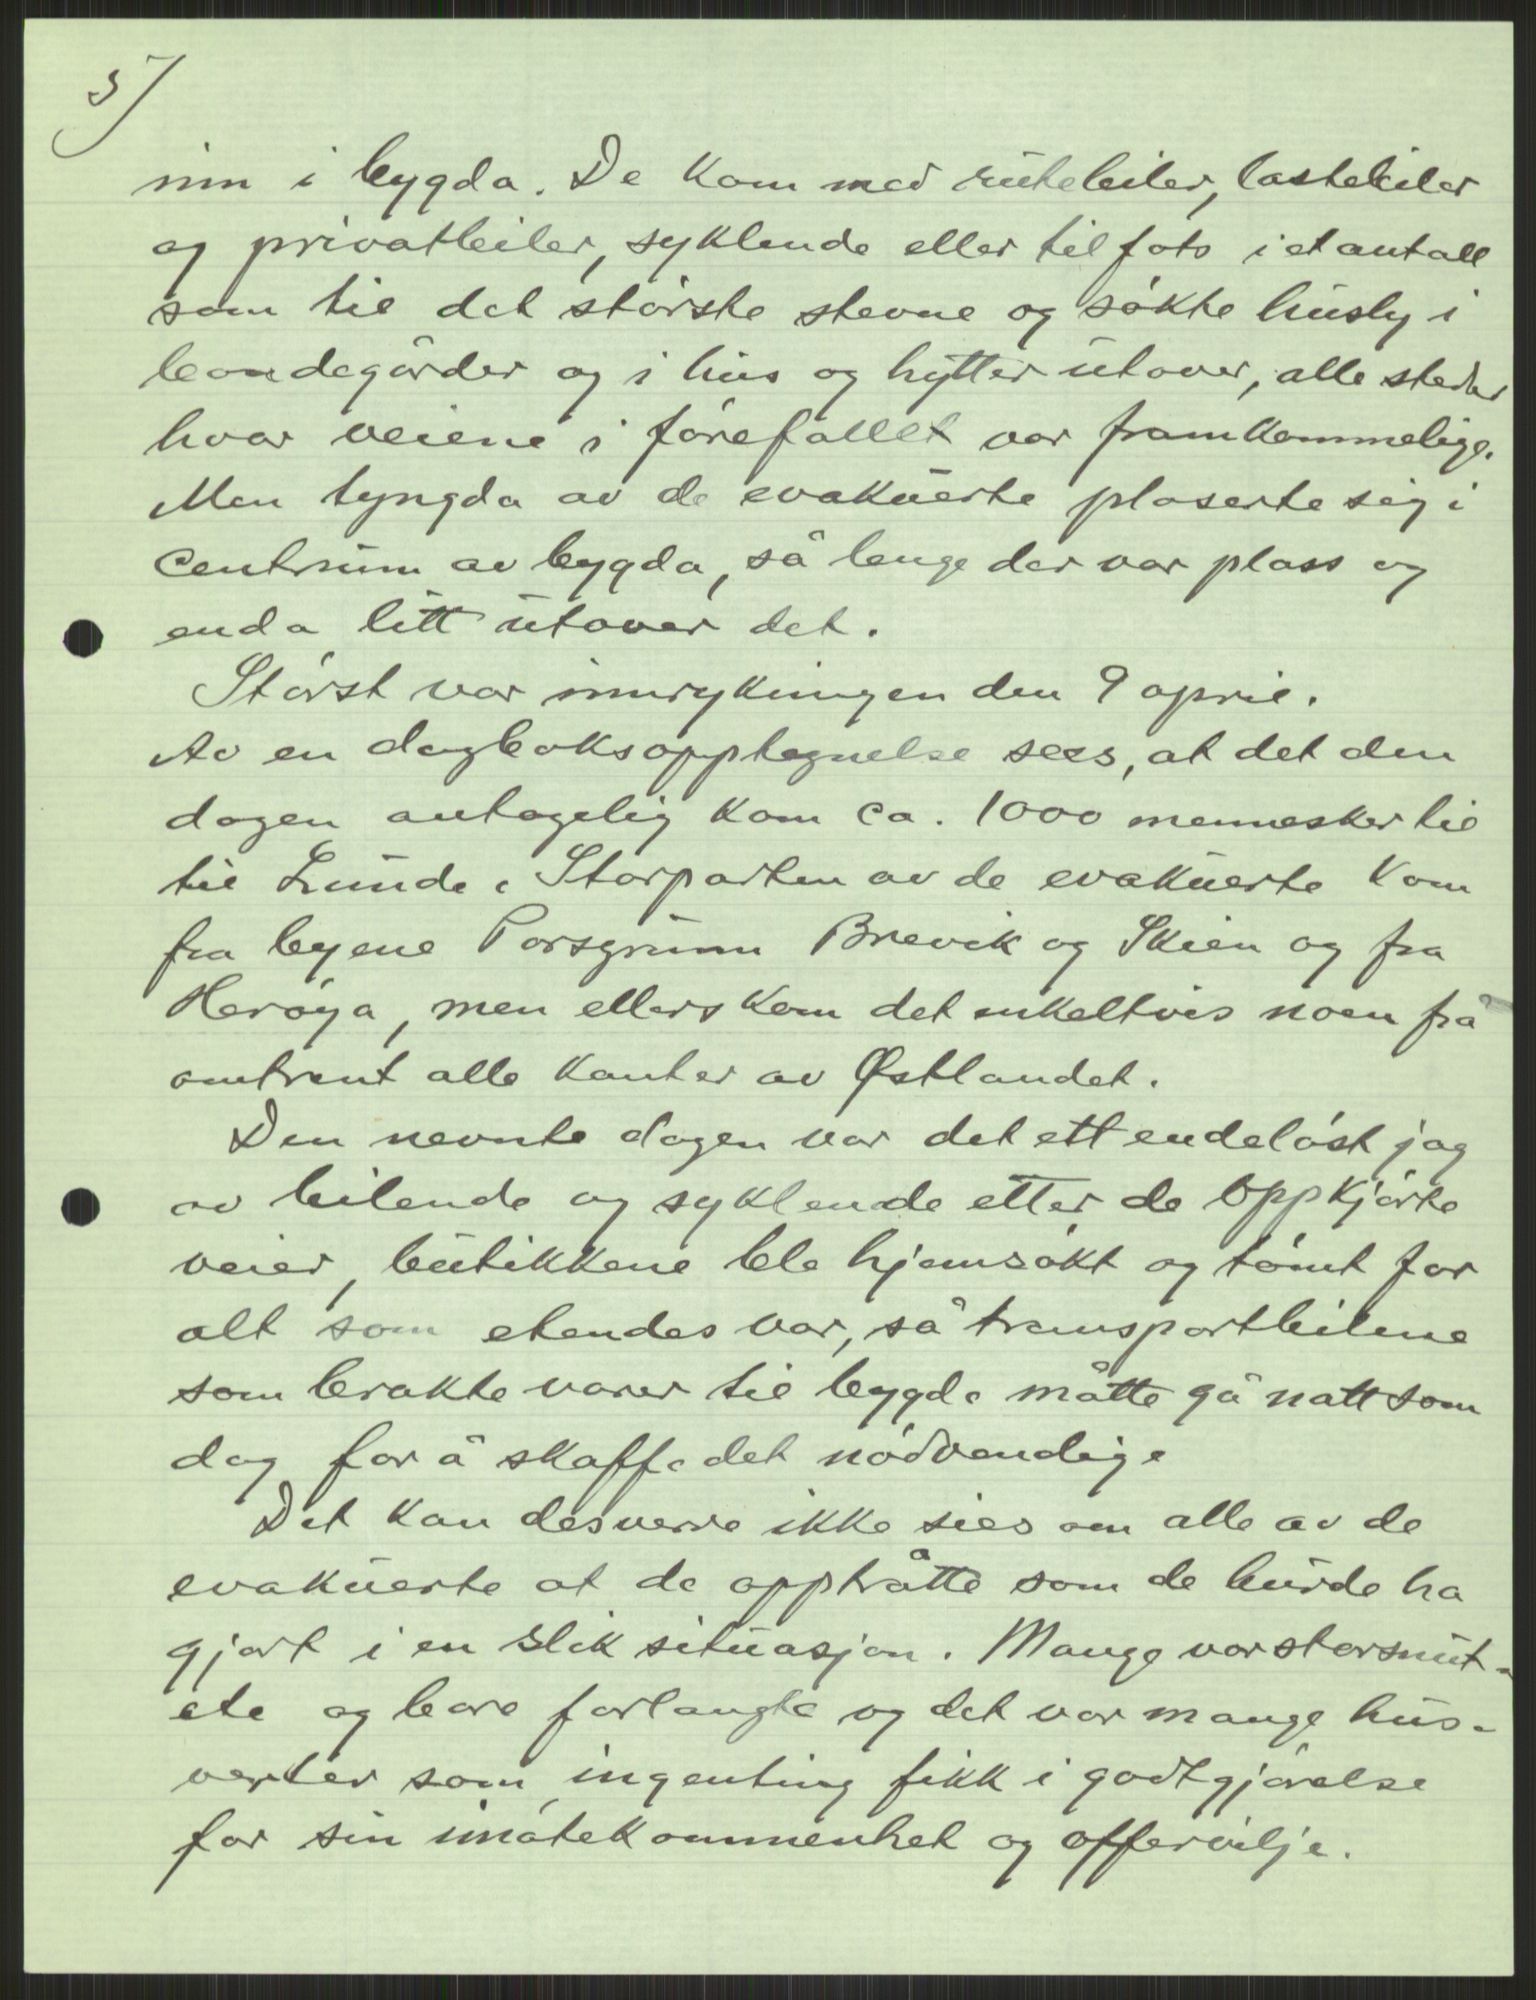 3/
inn i bygda. De kom med rutebiler, lastebiler
og privatbiler, syklende eller til fots i et antall
som til det største stevne og søkte husly i
bondegårder og i hus og hytter utover, alle steder
hvor veiene i førefallet var framkommelige.
Men tyngda av de evakuerte plaserte seg i
centrum av bygda, så lenge der var plass og
enda litt utover det.
Størst var innrykningen den 9 april.
Av en dagboksopptegnelse sees, at det den
dagen antagelig kom ca. 1000 mennesker til
til Lunde. Storparten av de evakuerte kom
fra byene Porsgrunn Brevik og Skien og fra
Herøya, men ellers kom det enkeltvis noen frå
omtrent alle kanter av Østlandet.
Den nevnte dagen var det ett endeløst jag
av bilende og syklende etter de oppkjørte
veier, butikkene ble hjemsøkt og tømt for
alt som etendes var, så transportbilene
som brakte varer til bygda måtte gå natt som
dag for å skaffe det nødvendige
Det kan desverre ikke sies om alle av de
evakuerte at de opptråtte som de burde ha
gjort i en slik situasjon. Mange var storsnut-
ete og bare forlangte og det var mange hus-
verter som ingenting fikk i godtgjørelse
for sin imøtekommenhet og offervilje.